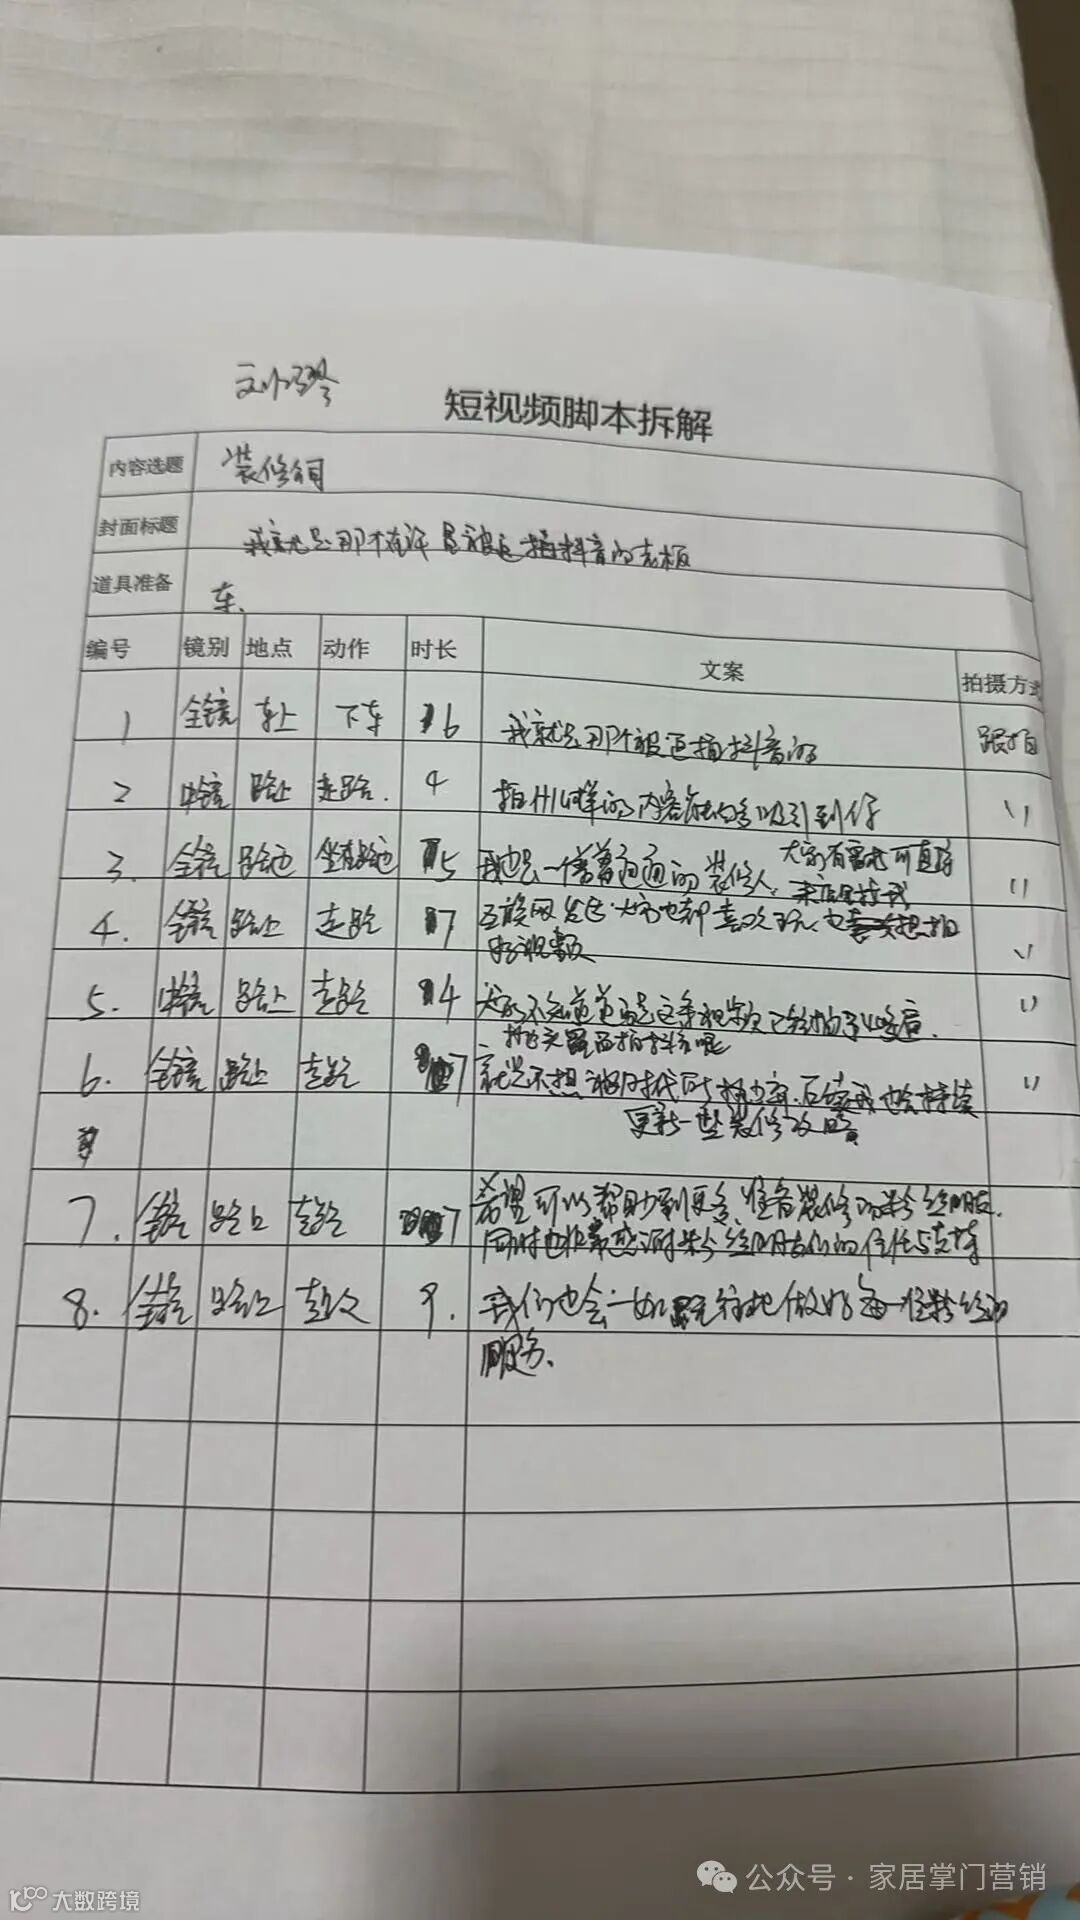 短视频脚本拆解
内容选题 装修
封面标题 我就是那个 被 拍抖音的老板
道具准备 车.
编号 镜别 地点 动作 时长 文案 拍摄方式
1 全镜 车上 下车 6 我就是那个被逼拍抖音的 跟拍
2 中镜 路上 走路. 4 拍什么样的内容 吸引到你 \\
3. 全镜 路边 坐在路边 5 我也是一个普普通通的装修人, 大家有需求可直接
来店里找我 \\
4. 全镜 路上 走路 7 互联网发达, 大家也都喜欢玩, 也 想拍
好视频 \\
5. 中镜 路上 走路 4 大家 不知道 这条视频 拍了 \\
6. 全镜 路上 走路 7 拍抖音呢
就是不想被时代所 后续我也会持续
更新一些装修攻略 \\
7. 全镜 路上 走路 7 希望可以帮助到更多准备装修的粉丝朋友.
同时也非常感谢粉丝朋友们的信任与支持
8. 全镜 路上 走路 9. 我们也会一如既往地做好每一位粉丝的
服务.
公众号 · 家居掌门营销
大数跨境